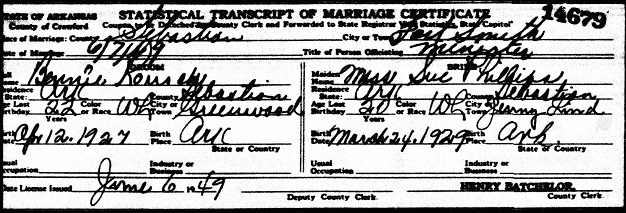 STATE OF ARKANSAS STATISTICAL TRANSCRIPT OF MARRIAGE CERTIFICATE 14679
County of Crawford County Clerk and Forwarded to State Registrar Vital Statistics, State Capitol
Place of Marriage: County Sebastian City or Town Fort Smith
Date of Marriage 6/7/49 Title of Person Officiating Minister
GROOM BRIDE
Bennie Maiden Name Miss Sue Phillips
Residence State Ark County Sebastian Residence State Ark County Sebastian
Age Last Birthday 22 Years Color or Race Wh City or Town Greenwood Age Last Birthday 20 Years Color or Race Wh City or Town Jenny Lind
Birth Date Apr 12. 1927 Birth Place Ark State or Country Birth Date March 24. 1929 Birth Place Ark. State or Country
Usual Occupation Industry or Business Usual Occupation Industry or Business
Date License Issued June 6 1949 HENRY BATCHELOR.
Deputy County Clerk. County Clerk.